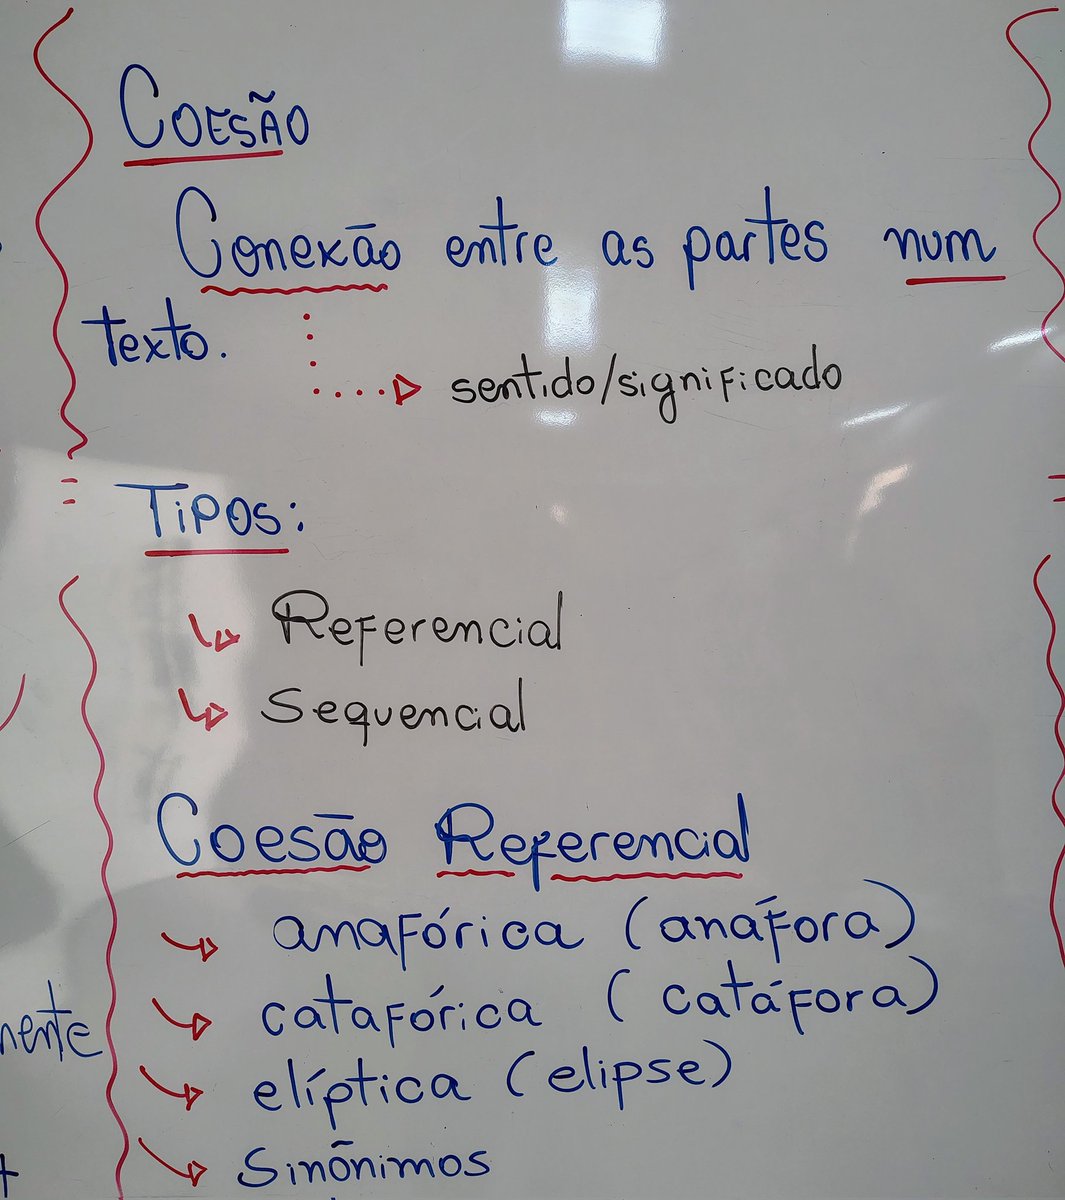 COESÃO
Conexão entre as partes num
texto.
sentido/significado
TIPOS:
Referencial
Sequencial
Coesão Referencial
anafórica (anáfora)
catafórica (catáfora)
nente
elíptica (elipse)
Sinônimos